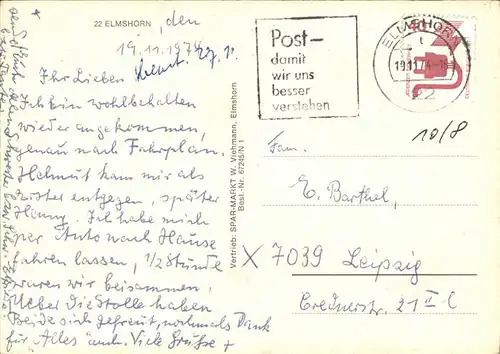 22 ELMSHORN, den
19.11.1974
Ihr Lieben
Ich bin wohlbehalten
wieder angekommen,
genau nach Fahrplan.
Helmut kam mir als
erster entgegen, später
Henny. Ich habe mich
per Auto nach Hause
fahren lassen, 1/2 Stunde
waren wir beisammen.
Ueber die Stolle haben
Beide sich gefreut, nochmals Dank
für Alles auch. Viele Grüsse +
Vertrieb: SPAR-MARKT W. Viehmann, Elmshorn
Best.-Nr. 67245/N 1
Post–
damit
wir uns
besser
verstehen
ELMSHORN
t
19.11.74-18
22
10/8
Fam.
E. Barthel,
X 7039 Leipzig
Crednerstr. 21 II C